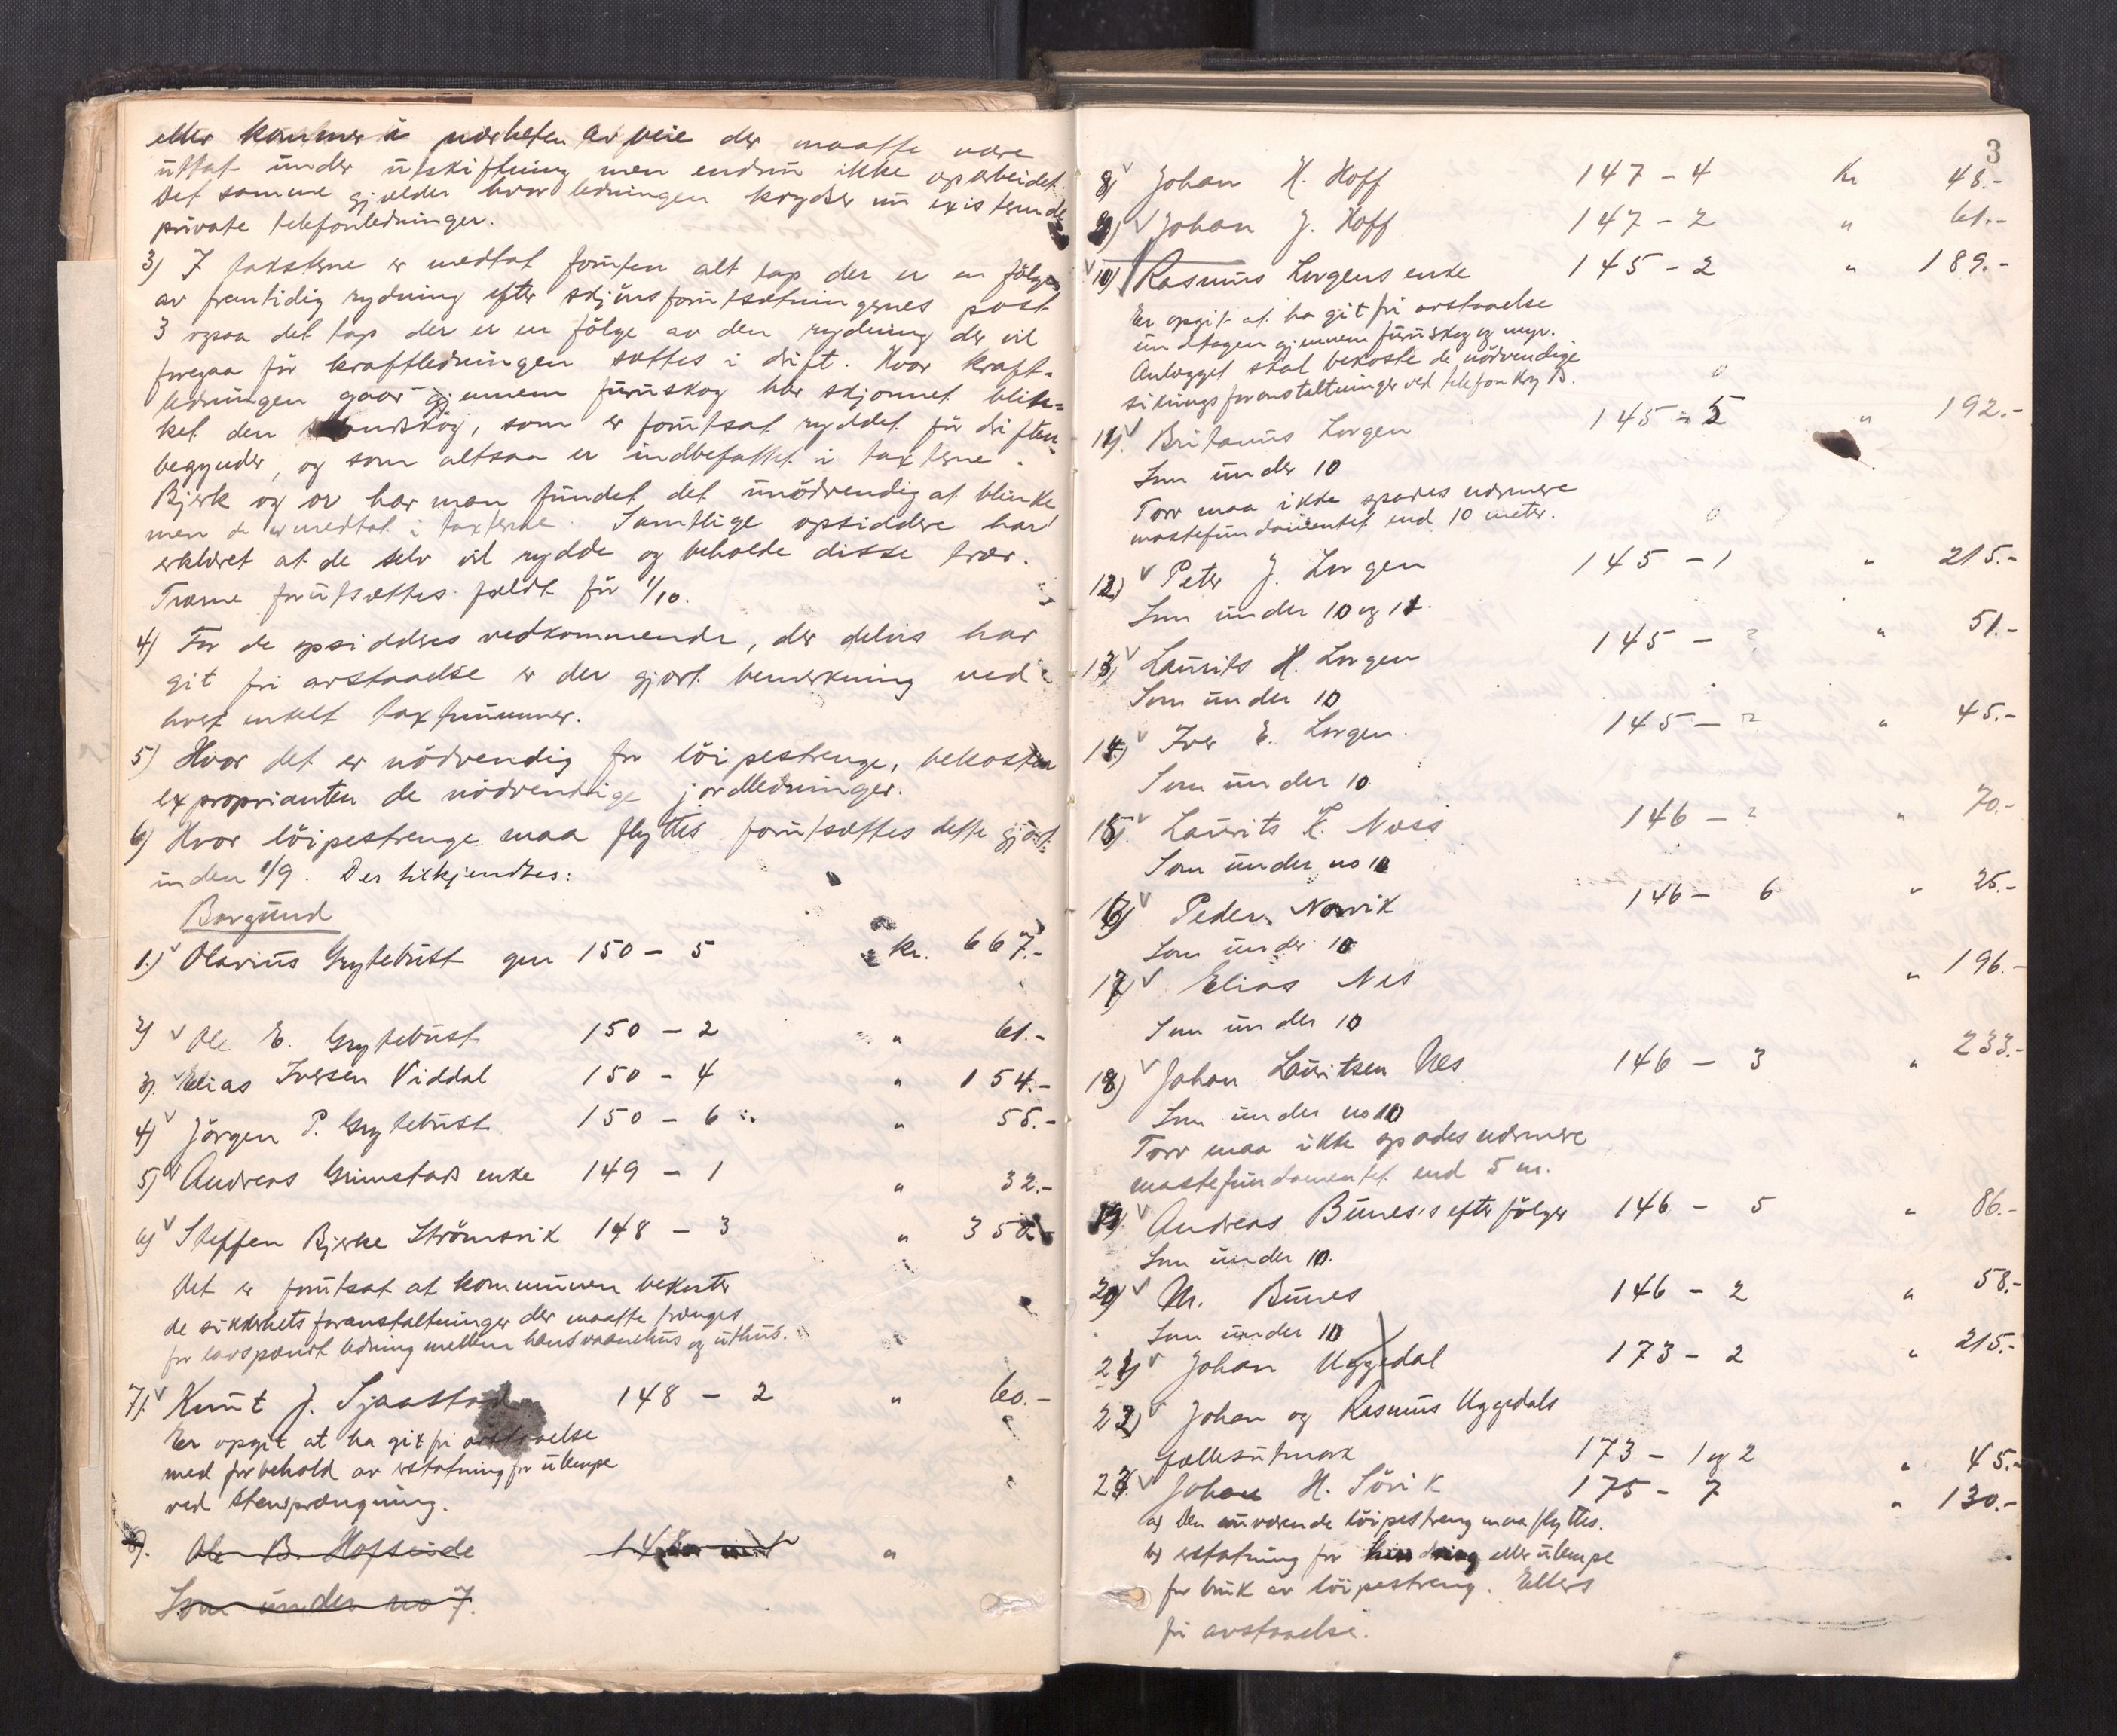 eller kommer i nærheten av veie der maatte være
uttat under utskiftning men endnu ikke oparbeidet.
Det samme gjælder hvor ledningen krydser nu existerende
private telefonledninger.
3) I taksterne er medtat foruten alt tap der er en följe
av fremtidig rydning efter skjönsforutsætningernes post
3 ogsaa det tap der er en fölge av den rydning der vil
foregaa för kraftledningen sættes i drift. Hvor kraft-
ledningen gaar gjennem furuskog har skjønnet blin-
ket den skog, som er forutsat ryddet för driften
begynder, og som altsaa er indbefattet i taxterne.
Bjerk og or har man fundet det unödvendig at blinke
men de er medtat i taxterne. Samtlige opsiddere har
erklæret at de selv vil rydde og beholde disse trær.
Trærne forutsættes fældt för 1/10.
4) For de opsidderes vedkommende, der delvis har
git fri avstaaelse er der gjort bemerkning ved
hvert enkelt taxtnummer.
5) Hvor det er nödvendig for löipestrenge, bekoster
exproprianten de nödvendige jordledninger.
6) Hvor löipestrenge maa flyttes forutsættes dette gjort
inden 1/9. Der tilkjendtes:
Borgund
1.) Olavius Grytebust gnr 150 - 5 kr. 667.-
2) Ole E. Grytebust 150 - 2 " 61.-
3). Elias Iversen Viddal 150 - 4 " 154.-
4) Jörgen P. Grytebust 150 - 6 " 55.-
5) Andreas Grimstads enke 149 - 1 " 32.-
6) Steffen Bjerke Strömsvik 148 - 3 " 350.-
Det er forutsat at kommunen bekoster
de sikkerhetsforanstaltninger der maatte trænges
for lavspændt ledning mellem hans vaanehus og uthus.
7). Knut J. Sjaastad 148 - 2 " 60.-
Er opgit at ha git fri avstaaelse
med forbehold av erstatning for ulempe
ved stensprængning.
8). Ole B. Hofseide 14 "
Som under no 7.
3
8) Johan H. Hoff 147 - 4 Kr 48.-
9) Johan J. Hoff 147 - 2 " 61.-
10) Rasmus Lorgens enke 145 - 2 " 189.-
Er opgit at ha git fri avstaaelse
undtagen gjennem furuskog og myr.
Anlægget skal bekoste de nödvendige
sikringsforanstaltninger ved telefonkryds.
11). Britanus Lorgen 145 - 5 " 192.-
Som under 10
Torv maa ikke spades nærmere
mastefundamentet end 10 meter.
12) Peter J. Lorgen 145 - 1 " 215.-
Som under 10 og 11.
13) Laurits H. Lorgen 145 - ? " 51.-
Som under 10
14) Iver E. Lorgen. 145 - ? " 45.-
Som under 10
15). Laurits K. Næss 146 - ? " 70.-
Som under no 10
16) Peder Norvik 146 - 6 " 25.-
Som under 10
17) Elias Nes " 196.-
Som under 10
18) Johan Lauritsen Nes 146 - 3 " 233.-
Som under no 10
Torv maa ikke spades nærmere
mastefundamentet end 5 m.
19) Andreas Bunes's efterfölger 146 - 5 " 86.-
Som under 10.
20) M. Bunes 146 - 2 " 58.-
Som under 10
21) Johan Uggedal 173 - 2 " 215.-
22) Johan og Rasmus Uggedals
fællesutmark 173 - 1 og 2 " 45.-
23. Johan H. Sövik 175 - 7 " 130.-
a) Den nuværende löipestreng maa flyttes.
b) erstatning for hindring eller ulempe
for bruk av löipestreng. Ellers
fri avstaaelse.